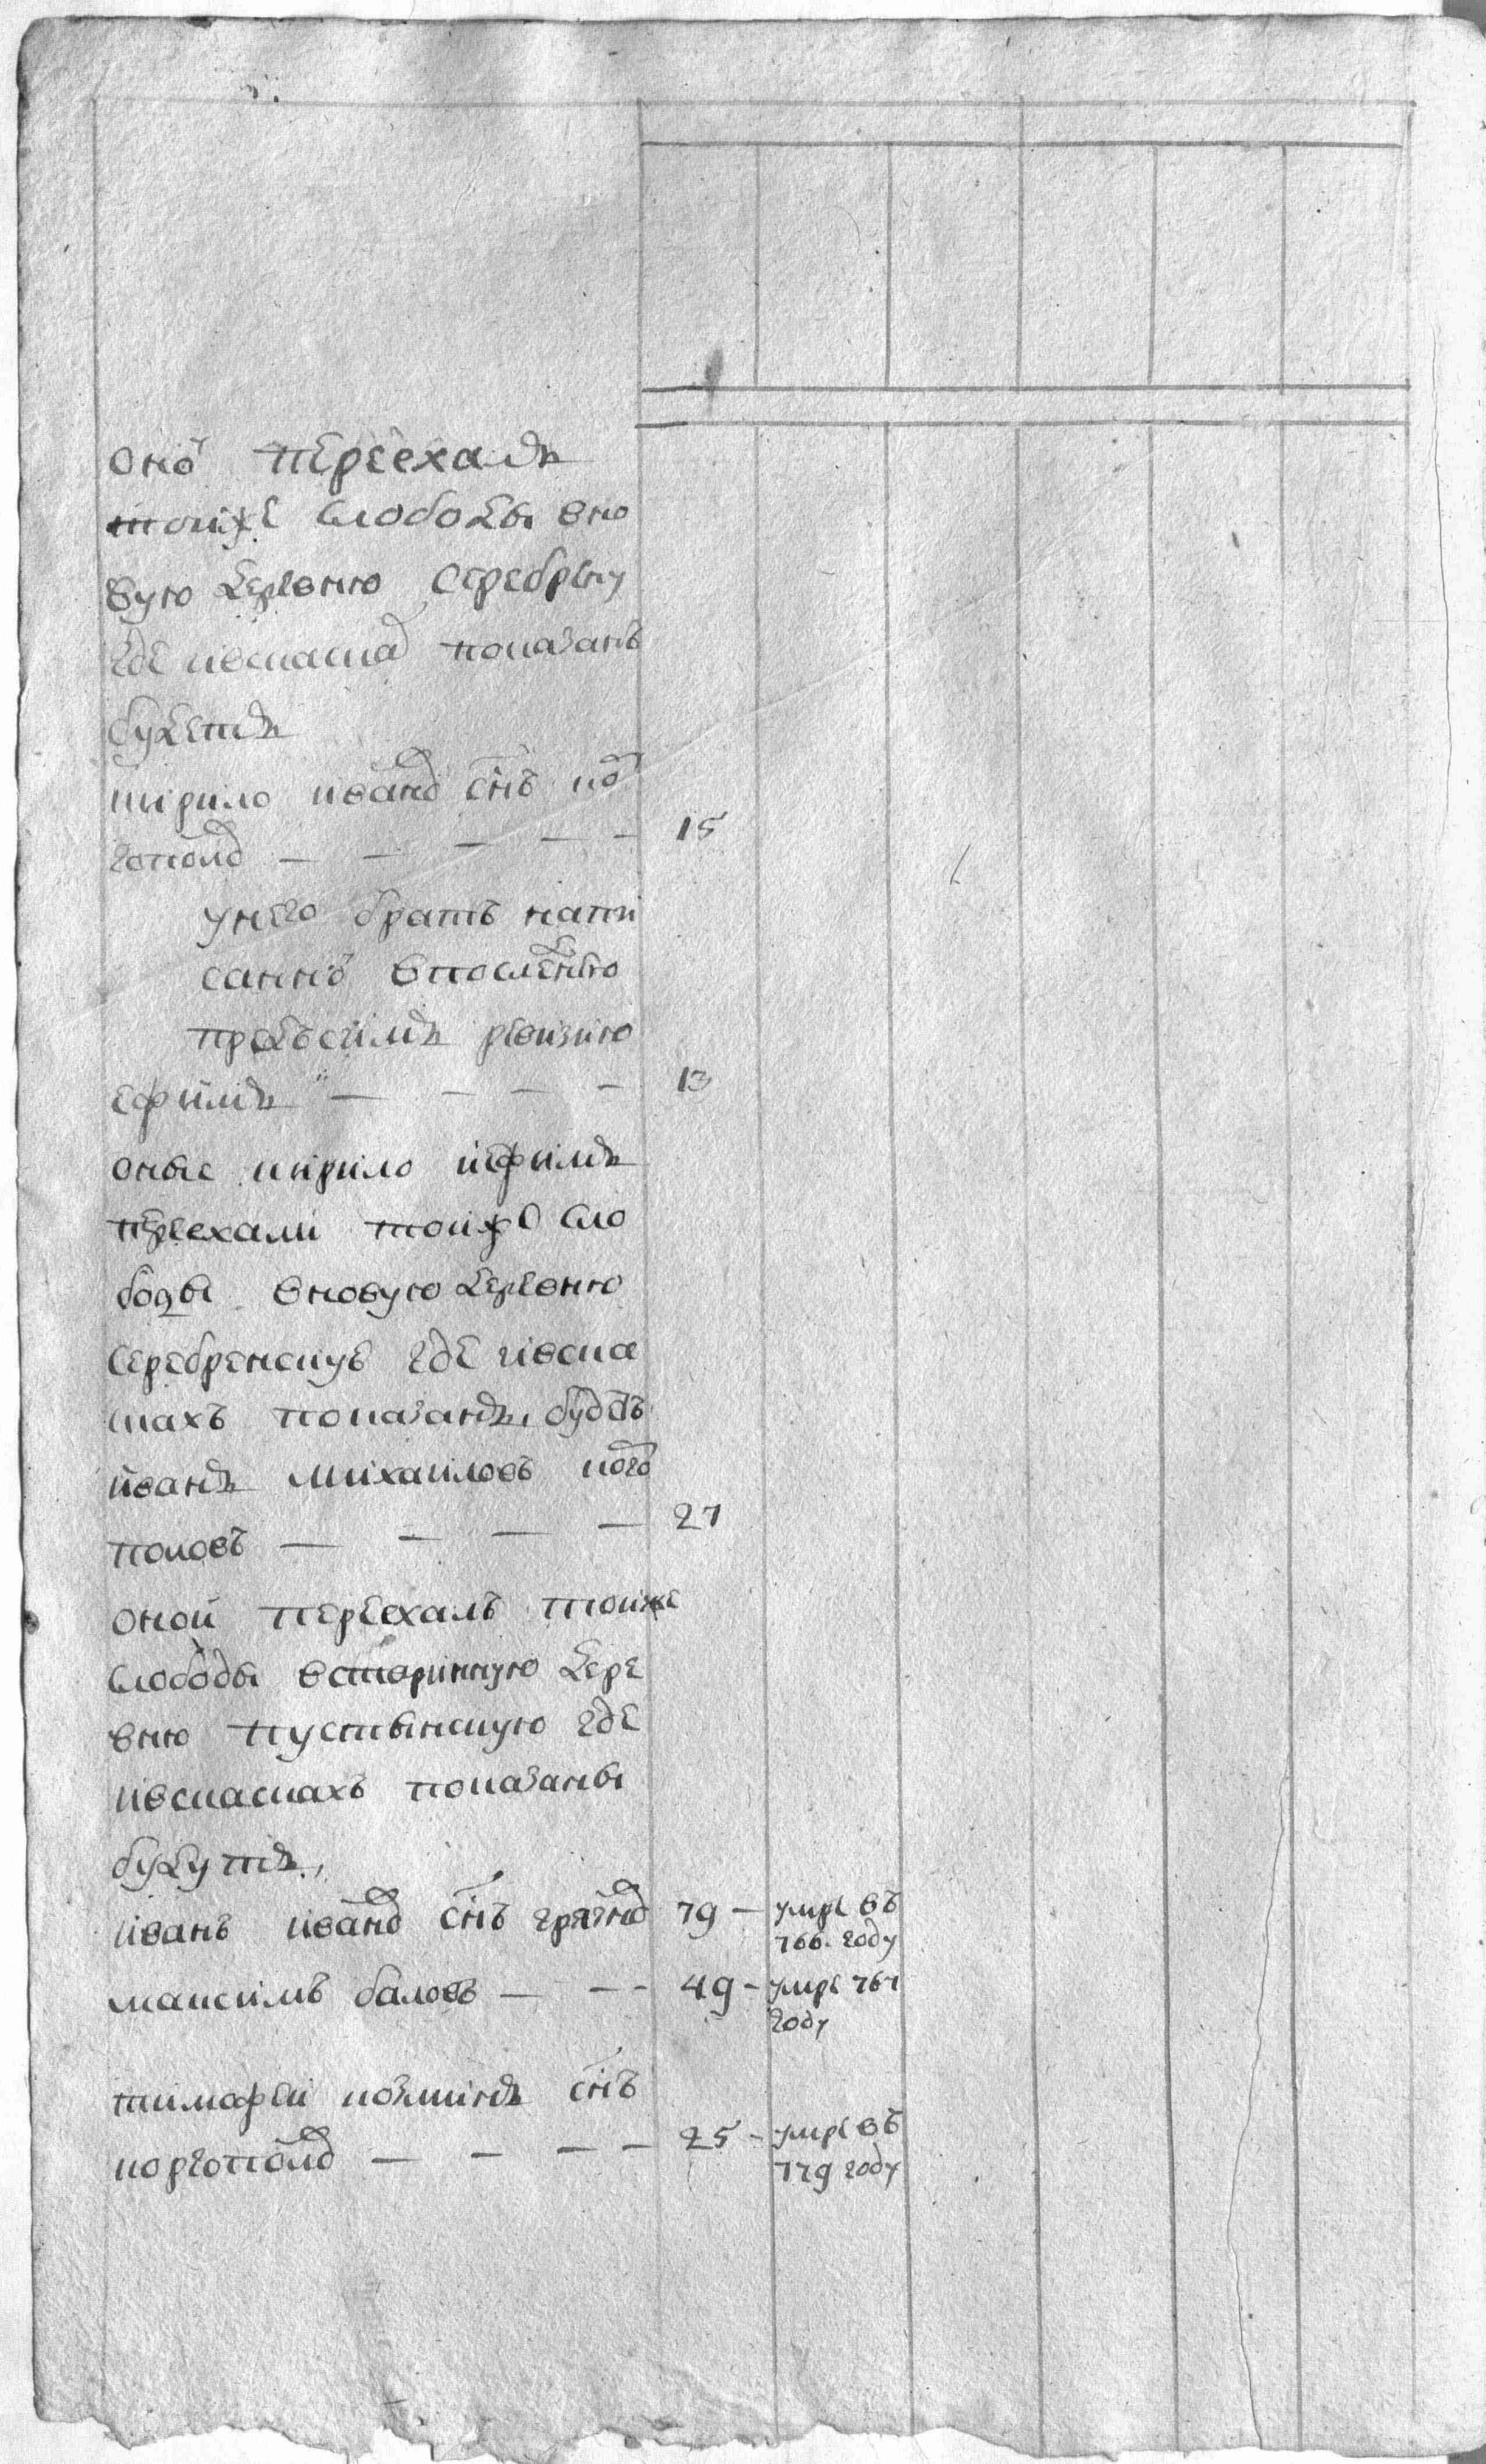 оной переехалъ
тоиже слободы вно
вую деревню серебрену
где ивскаска показанъ
будетъ
кирило иванов снъ кор
гополов — — — — — 15
унего братъ напи
санной впоследнюю
предъсимъ ревизию
ефимъ — — — — 13
оные кирило иефимъ
переехали тоиже сло
боды вновую деревню
серебренскую где ивска
скахъ показаны будутъ
иванъ михаиловъ карго
половъ — — — — 27
оной переехалъ тоиже
слободы встаринную дере
вню пустынскую где
ивскаскахъ показаны
будутъ
иванъ иванов снъ 79 — умре въ
766. году
максимъ баловъ — — - 49 - умре 767
году
тимофеи козминъ снъ
коргополов — — — — 25 - умре въ
779 году